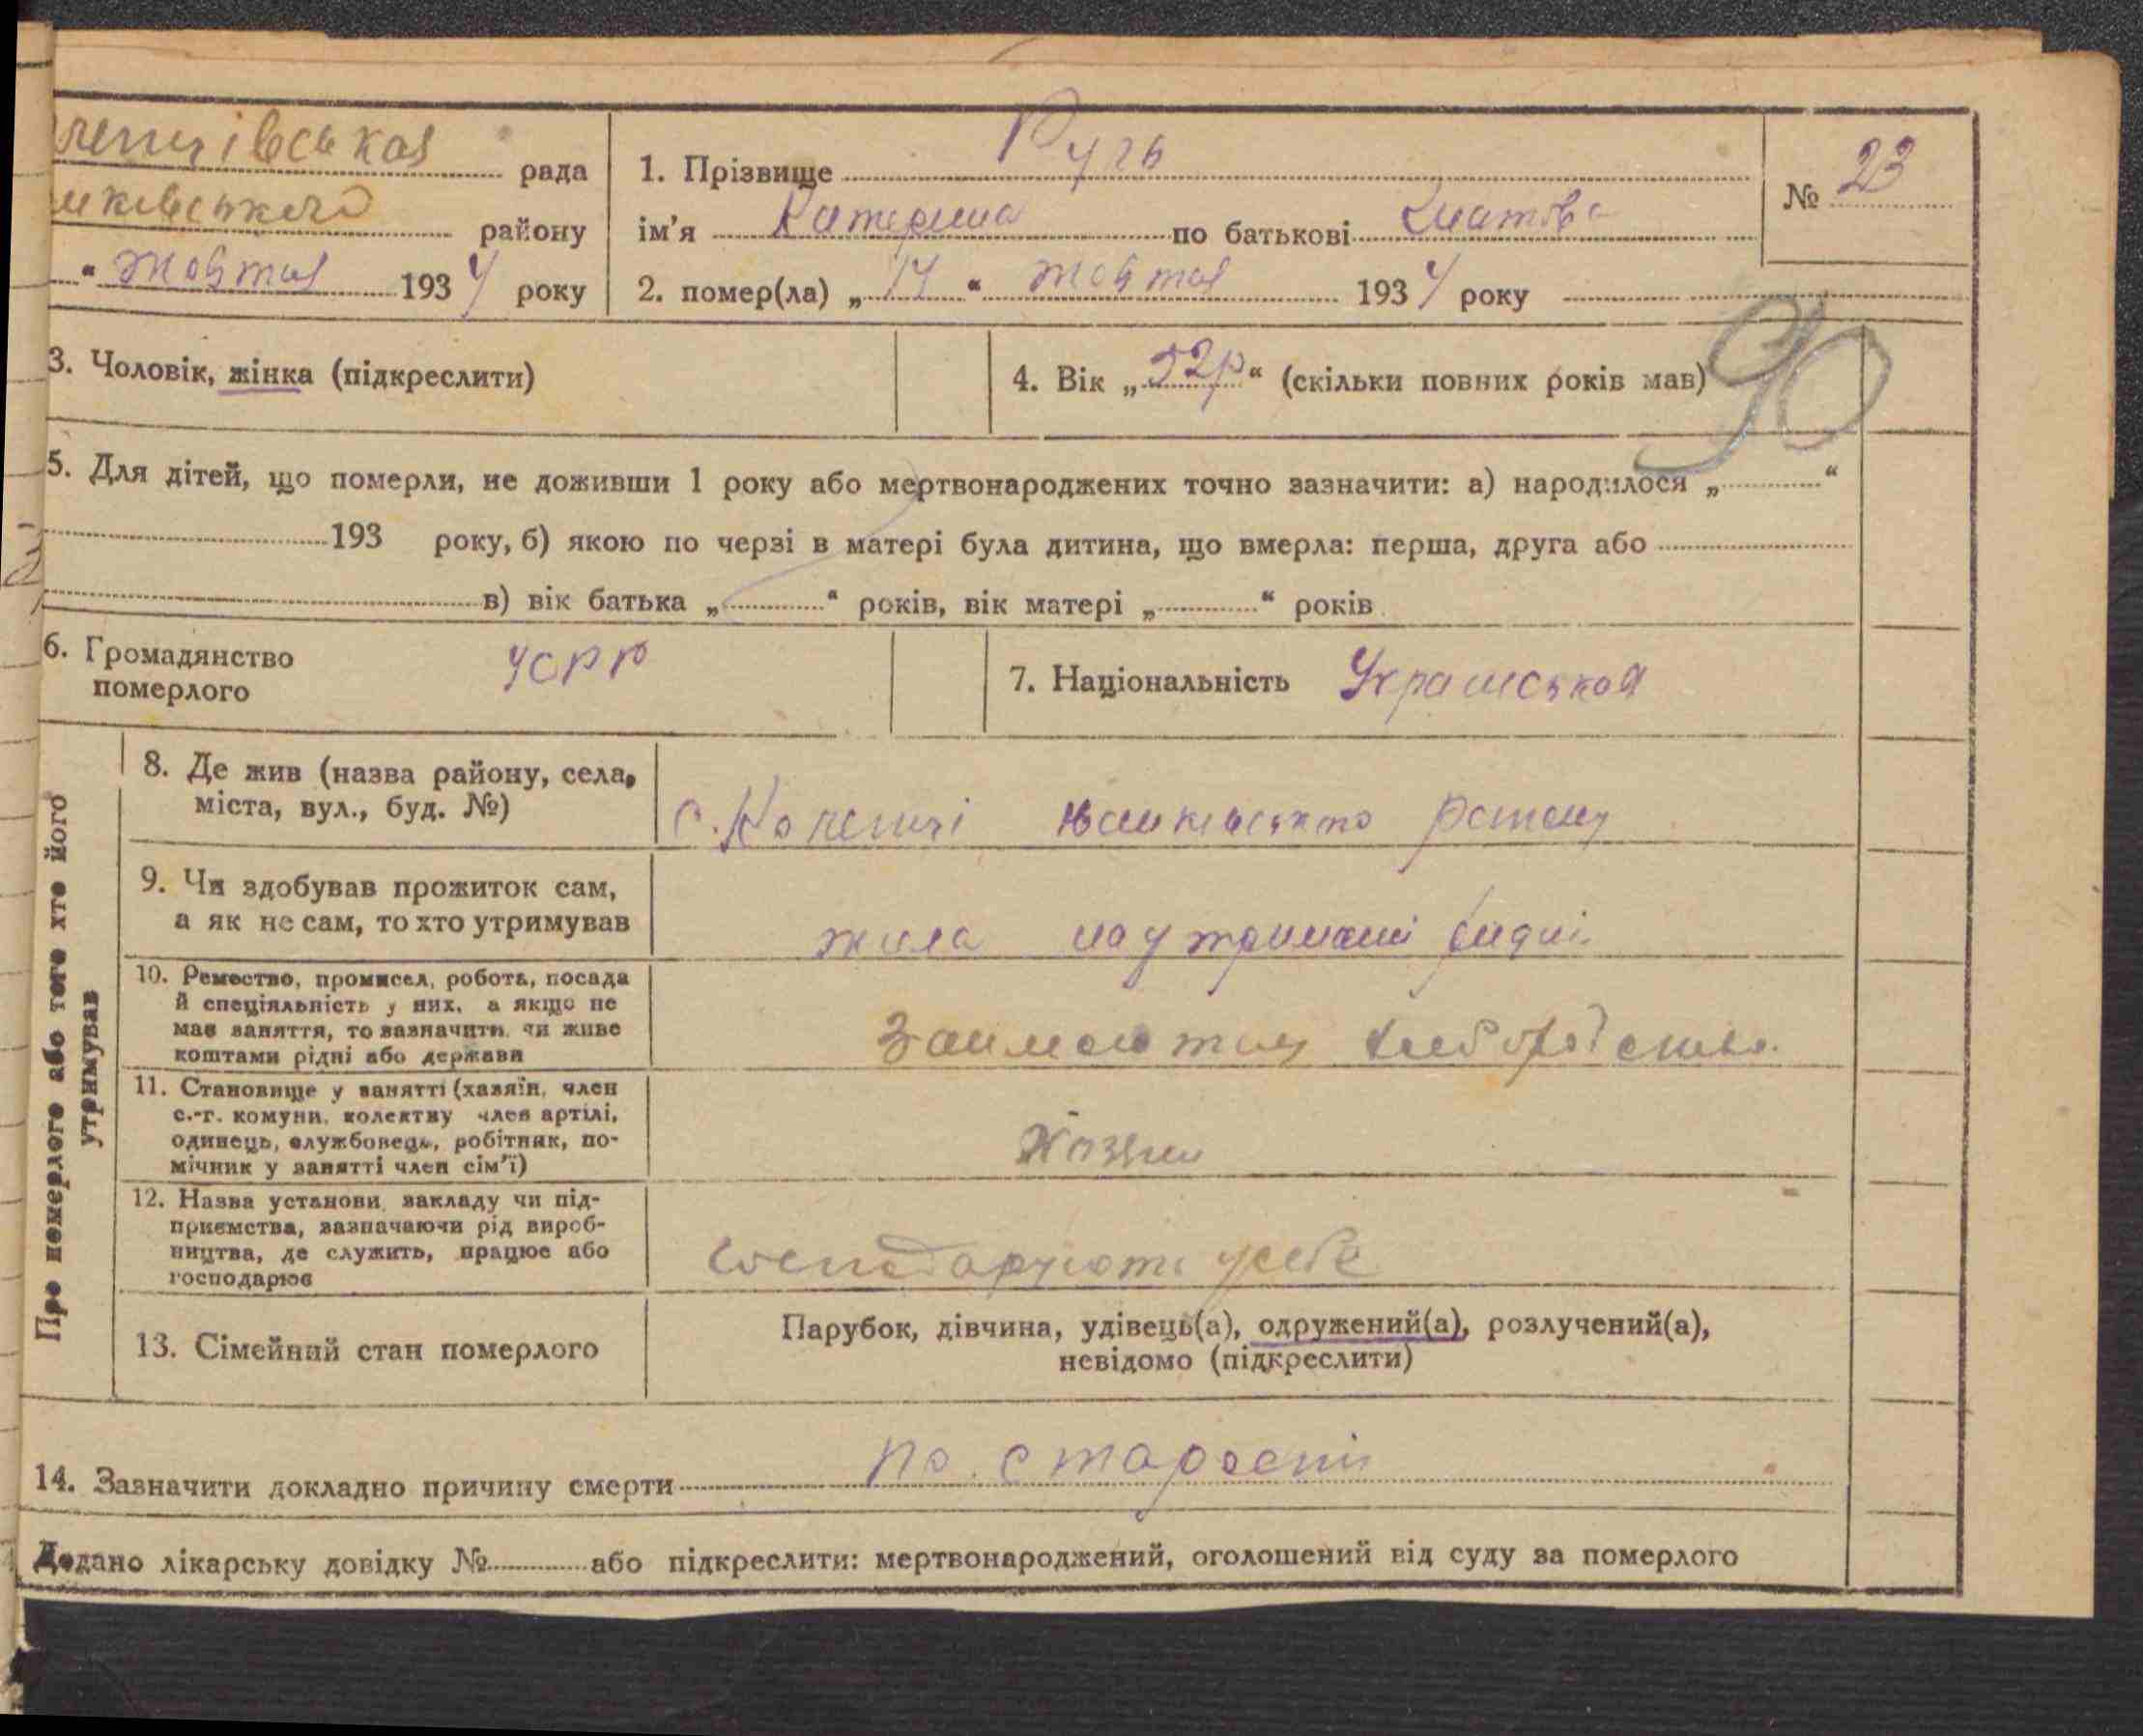 рада
району
" жовтня 1934 року
1. Прізвище Руль
№ 23
ім'я Катерина по батькові Гнатова
2. помер(ла) „ 14 “ жовтня 1934 року
3. Чоловік, жінка (підкреслити)
4. Вік „ 52р “ (скільки повних років мав)
90
5. Для дітей, що померли, не доживши 1 року або мертвонароджених точно зазначити: а) народилося „ “
193 року, б) якою по черзі в матері була дитина, що вмерла: перша, друга або
в) вік батька „ “ років, вік матері „ “ років
6. Громадянство
померлого
УСРР
7. Національність Українська
Про померлого або того хто його
утримував
8. Де жив (назва району, села,
міста, вул., буд. №)
с.
9. Чи здобував прожиток сам,
а як не сам, то хто утримував
жила на утриманні рідні
10. Ремество, промисел, робота, посада
й спеціяльність у них, а якщо не
мав заняття, то зазначити чи живе
коштами рідні або держави
11. Становище у занятті (хазяїн, член
с.-г. комуни, колективу член артілі,
одинець, службовець, робітник, по-
мічник у занятті член сім'ї)
12. Назва установи закладу чи під-
приємства, зазначаючи рід вироб-
ництва, де служить, працює або
господарює
господарують у себе
13. Сімейний стан померлого
Парубок, дівчина, удівець(а), одружений(а), розлучений(а),
невідомо (підкреслити)
14. Зазначити докладно причину смерти по старості
Додано лікарську довідку № або підкреслити: мертвонароджений, оголошений від суду за померлого